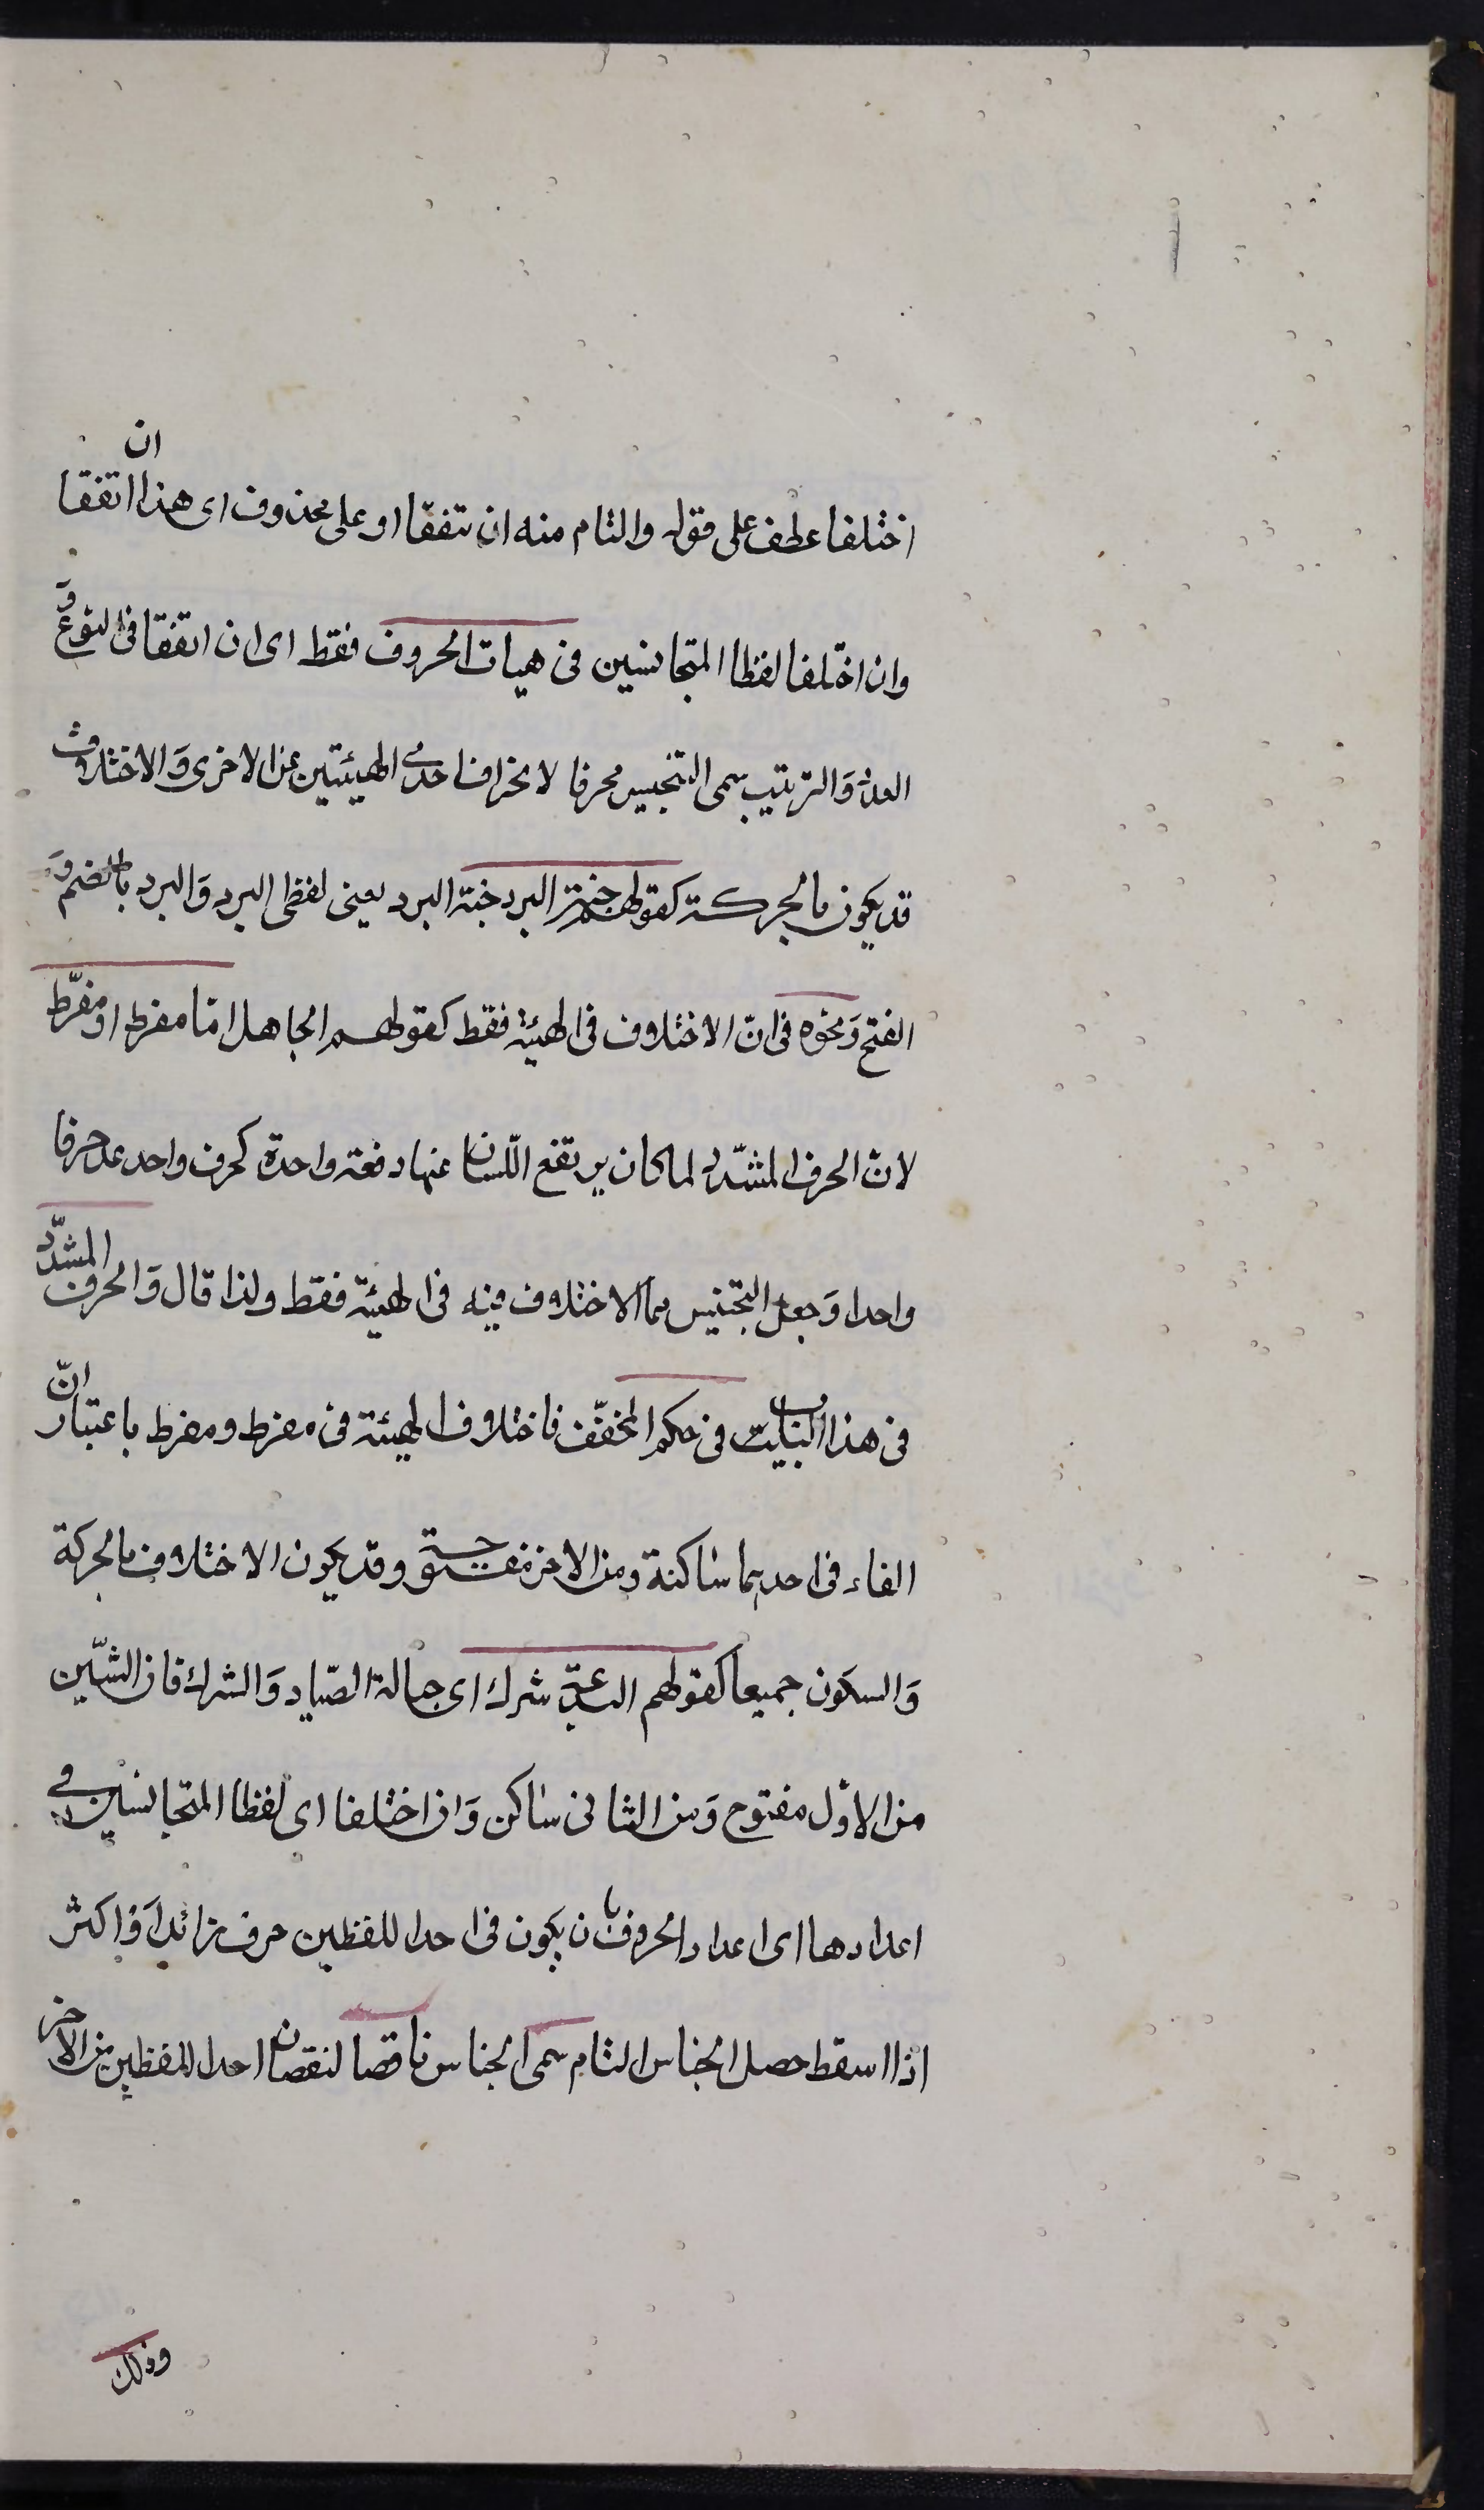 اختلفا عطف على قوله والتام منه ان يتفقا او على محذوف اى هذا ان اتفقا
وان اختلفا لفظا المتجانسين فى هيات الحروف فقط اى ان اتفقا فى النوع و
العدد وَالترتيب سمى التجنيس محرفا لانحراف احدى الهيئتين عن الاخرى وَالاختلاف
قد يكون بالحركة كقولهم جبّة البرد جنة البرد يعنى لفظى البرد وَالبرد بالضم وَ
الفتح وَنحوه فى انّ الاختلاف فى الهيئة فقط كقولهم الجاهل امّا مفرط او مفرّط
لانّ الحرف المشدّد لما كان يرتفع اللّسان عنها دفعة واحدة كحرف واحد عد حرفا
واحدا وَجعل التجنيس مما الاختلاف فيه فى الهيئة فقط ولذا قال وَالحرف المشدّد
فى هذا الباب فى حكم المخفّف فاختلاف الهيئة فى مفرط ومفرط باعتبار انّ
الفاء فى احديهما ساكنة ومن الاخر مفتوحة وقد يكون الاختلاف بالحركة
وَالسكون جميعا كقولهم البدعة شرك اى حبالة الصّياد وَالشرك فان الشّين
من الاوّل مفتوح وَمن الثانى ساكن وَان اختلفا اى لفظا المتجانسين فى
اعدادها اى اعداد الحروف بان يكون فى احد اللفظين حرف زائد اَو اكثر
اذا اسقط حصل الجناس التام سمى الجناس ناقصا لنقصان احد اللفظين عن الاخر
وذلك